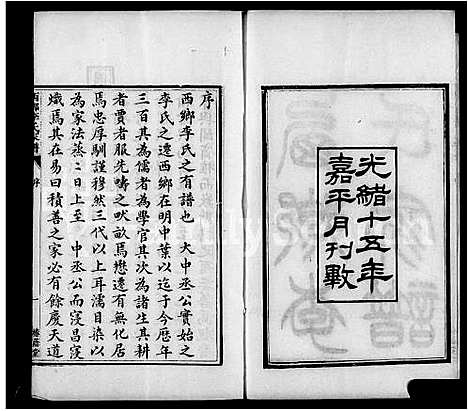 光緒十五年
嘉平月刊數
序
西鄉李氏之有譜也 大中丞公實始之
李氏之遷西鄉在明中葉以迄于今歷年
三百其為儒者為學官其次為諸生其耕
者賈者服先疇之畎畝焉懋遷有無化居
焉忠厚馴謹穆然三代以上耳濡目染以
為家法蒸蒸日上至 中丞公而寖昌寖
熾焉其在易曰積善之家必有餘慶天道
序
一